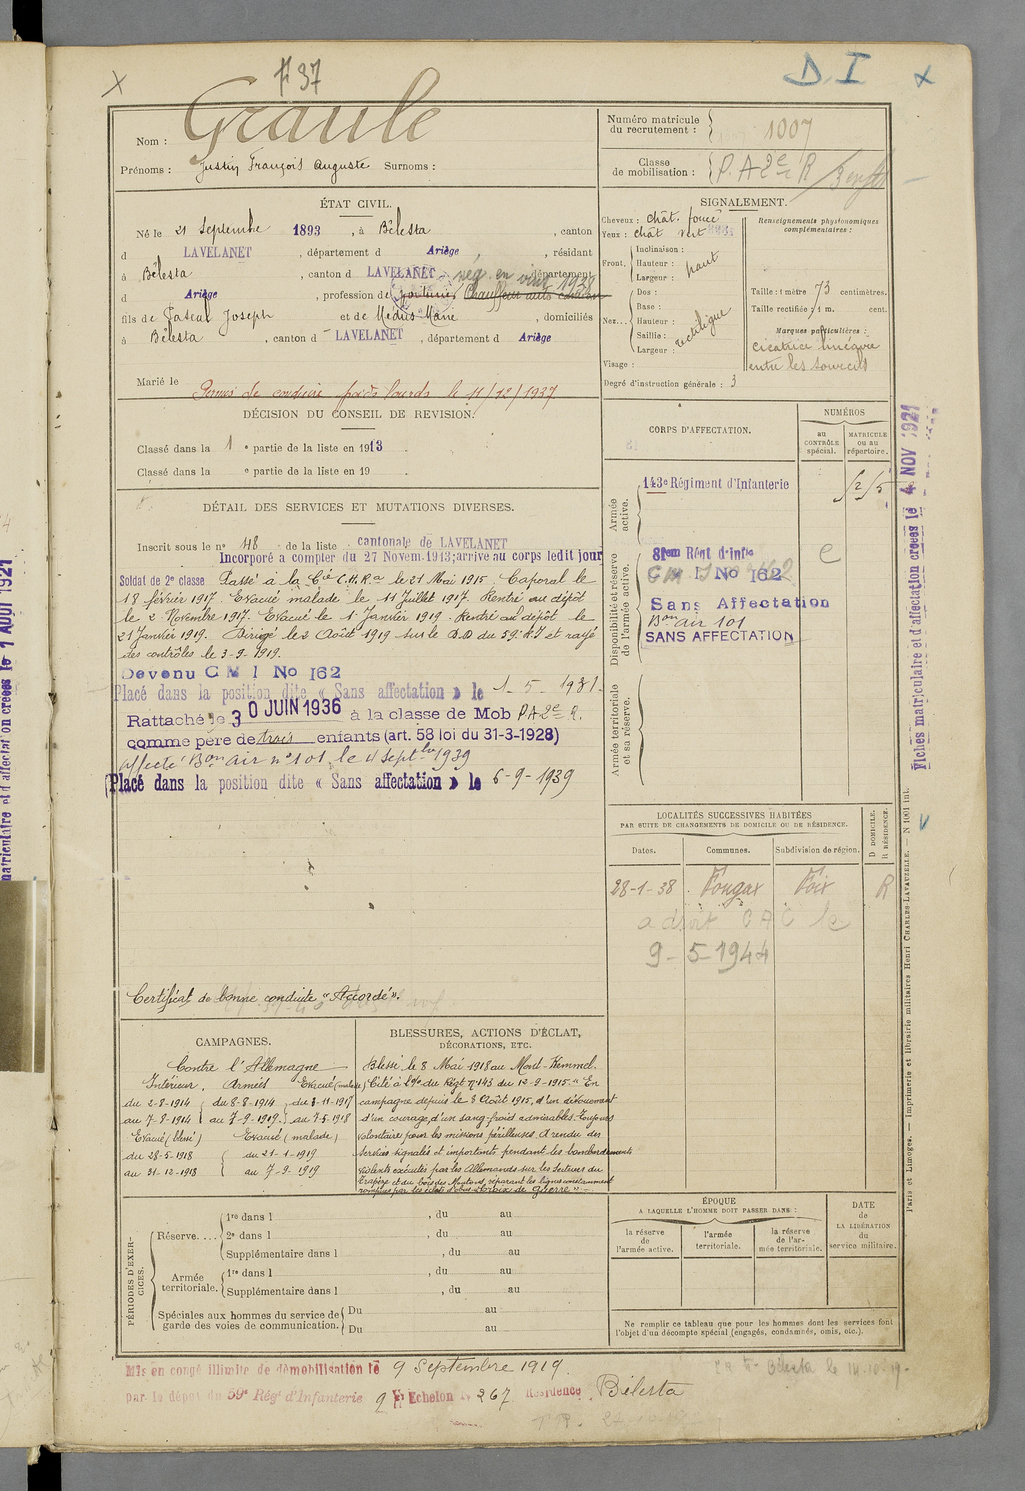 F 37
D. I
Nom : Graule
Prénoms : Justin François Auguste Surnoms :
Numéro matricule du recrutement : 1007
Classe de mobilisation : P. A 2e R
ÉTAT CIVIL.
Né le 21 Septembre 1893, à Bélesta, canton
d LAVELANET, département d Ariège, résidant
à Bélesta, canton d LAVELANET, département
d Ariège, profession de Chauffeur auto
nég. en vins 1938
fils de Pascal Joseph et de Médus Marie, domiciliés
à Bélesta, canton d LAVELANET, département d Ariège
Marié le
Permis de conduire poids lourds le 11/12/1937
SIGNALEMENT.
Cheveux : chât. foncé
Yeux : chât vert
Front. Inclinaison :
Hauteur : haut
Largeur :
Nez... Dos :
Base :
Hauteur : rectiligne
Saillie :
Largeur :
Visage :
Degré d'instruction générale : 3
Renseignements physionomiques complémentaires :
Taille : 1 mètre 73 centimètres.
Taille rectifiée : 1 m. cent.
Marques particulières :
cicatrice linéaire
entre les sourcils
DÉCISION DU CONSEIL DE REVISION.
Classé dans la 1e partie de la liste en 1913.
Classé dans la e partie de la liste en 19 .
DÉTAIL DES SERVICES ET MUTATIONS DIVERSES.
Inscrit sous le n° 48 de la liste cantonale de LAVELANET
Incorporé a compter du 27 Novem. 1913; arrive au corps ledit jour
Soldat de 2e classe Passé à la Cie C.H.R. le 21 Mai 1915. Caporal le
18 février 1917. Evacué malade le 11 Juillet 1917. Rentré au dépôt
le 2 Novembre 1917. Evacué le 1 Janvier 1919. Rentré au dépôt le
21 Janvier 1919. Dirigé le 2 Août 1919 sur le D.D du 59e R.I et rayé
des contrôles le 3-9-1919.
Devenu C M I No 162
Placé dans la position dite « Sans affectation » le 1-5-1931.
Rattaché le 30 JUIN 1936 à la classe de Mob PA 2e R.
comme père de trois enfants (art. 58 loi du 31-3-1928)
affecté Bon air n° 101, le 4 Septbre 1939
Placé dans la position dite « Sans affectation » le 6-9-1939
Certificat de bonne conduite "Accordé".
CORPS D'AFFECTATION.
NUMÉROS
au CONTRÔLE spécial.
MATRICULE ou au répertoire.
Armée active.
143e Régiment d'Infanterie
Disponibilité et réserve de l'armée active.
81em Régt d'Infie
C M I No 162
Sans Affectation
Bon air 101
SANS AFFECTATION
Armée territoriale et sa réserve.
LOCALITÉS SUCCESSIVES HABITÉES
PAR SUITE DE CHANGEMENTS DE DOMICILE OU DE RÉSIDENCE.
Dates. Communes. Subdivision de région. D DOMICILE. R RÉSIDENCE.
28-1-38 Fougax Foix R
a droit C A C le
9-5-1944
CAMPAGNES.
Contre l'Allemagne
Intérieur. Armées Evacué (malade)
du 2-8-1914 du 8-8-1914
au 7-8-1914 au 7-9-1919
Evacué (blessé) Evacué (malade)
du 28-5-1918 du 21-1-1919
au 31-12-1918 au 7-9-1919
BLESSURES, ACTIONS D'ÉCLAT, DÉCORATIONS, ETC.
Blessé le 8 Mai 1918 au Mont-Kemmel.
Cité à l'O/ du Régt n° 143 du 12-9-1915. "En
campagne depuis le 8 Août 1915, d'un dévouement
d'un courage, d'un sang-froid admirables. Toujours
volontaire pour les missions périlleuses. A rendu des
services signalés et importants pendant les bombardements
violents exécutés par les Allemands sur les secteurs du
Trapèze et du bois des Moutons, réparant les lignes constamment
rompues par les éclats d'obus" Croix de Guerre
PÉRIODES D'EXERCICES.
Réserve....
1re dans l , du au
2e dans l , du au
Supplémentaire dans l , du au
Armée territoriale.
1re dans l , du au
Supplémentaire dans l , du au
Spéciales aux hommes du service de garde des voies de communication.
Du au
Du au
ÉPOQUE
A LAQUELLE L'HOMME DOIT PASSER DANS :
la réserve de l'armée active.
l'armée territoriale.
la réserve de l'armée territoriale.
DATE de LA LIBÉRATION du service militaire.
Ne remplir ce tableau que pour les hommes dont les services font l'objet d'un décompte spécial (engagés, condamnés, omis, etc.).
Mis en congé illimité de démobilisation le 9 Septembre 1919.
par le dépot du 59e Régt d'Infanterie 9 Echelon 267 Résidence Bélesta
Fiches matriculaire et d'affectation créées le 4 NOV 1921
Paris et Limoges. — Imprimerie et librairie militaires Henri CHARLES-LAVAUZELLE. — N 1001 int.
matriculaire et d'affectation créées le 1 AOUT 1921